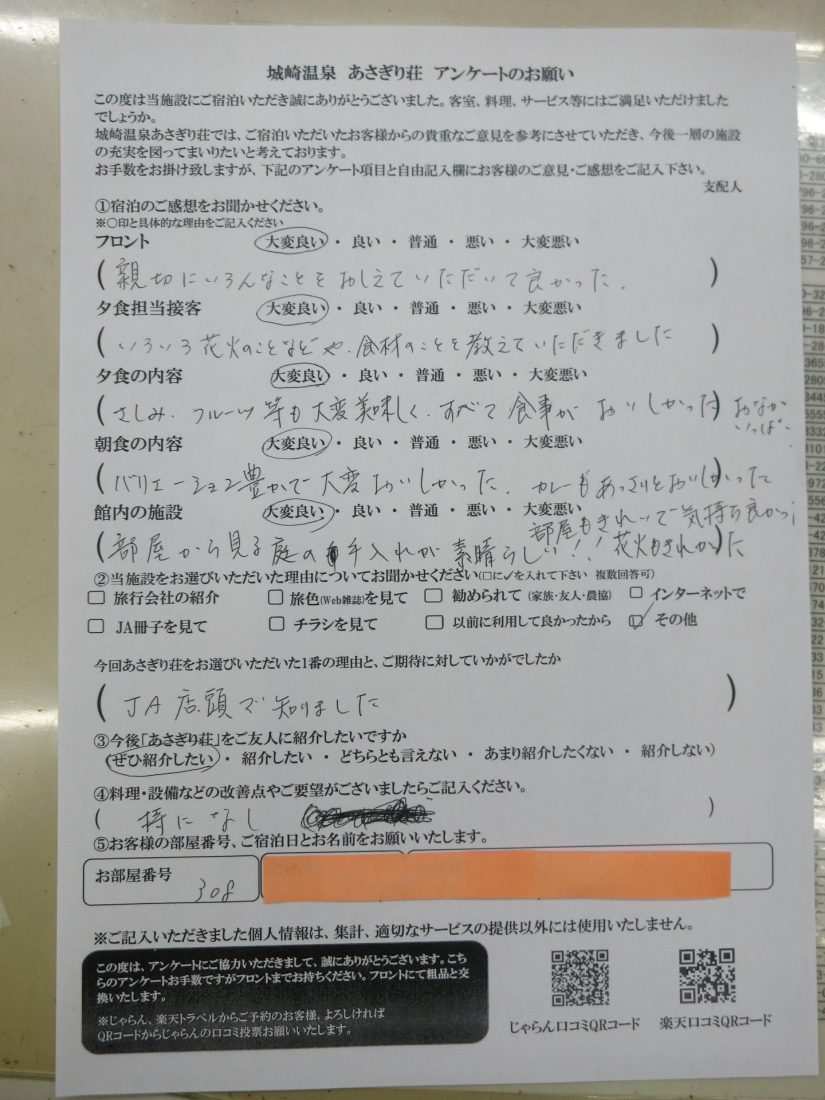 城崎温泉 あさぎり荘 アンケートのお願い
この度は当施設にご宿泊いただき誠にありがとうございました。客室、料理、サービス等にはご満足いただけました
でしょうか。
城崎温泉あさぎり荘では、ご宿泊いただいたお客様からの貴重なご意見を参考にさせていただき、今後一層の施設
の充実を図ってまいりたいと考えております。
お手数をお掛け致しますが、下記のアンケート項目と自由記入欄にお客様のご意見・ご感想をご記入下さい。
支配人
①宿泊のご感想をお聞かせください。
※○印と具体的な理由をご記入ください
フロント 大変良い ・ 良い ・ 普通 ・ 悪い ・ 大変悪い
(親切にいろんなことをおしえていただいて良かった.)
夕食担当接客 大変良い ・ 良い ・ 普通 ・ 悪い ・ 大変悪い
(いろいろ花火のことなどや、食材のことを教えていただきました)
夕食の内容 大変良い ・ 良い ・ 普通 ・ 悪い ・ 大変悪い
(さしみ、フルーツ等も大変美味しく、すべて食事がおいしかった) おなか
いっぱい
朝食の内容 大変良い ・ 良い ・ 普通 ・ 悪い ・ 大変悪い
(バリエーション豊かで大変おいしかった、カレーもあっさりとおいしかった)
館内の施設 大変良い ・ 良い ・ 普通 ・ 悪い ・ 大変悪い
部屋もきれいで気持ち良かっ
(部屋から見る庭の手入れが素晴らしい!! 花火もきれかった)
②当施設をお選びいただいた理由についてお聞かせください(□に✓を入れて下さい 複数回答可)
□ 旅行会社の紹介 □ 旅色(Web雑誌)を見て □ 勧められて (家族・友人・農協) □ インターネットで
□ JA冊子を見て □ チラシを見て □ 以前に利用して良かったから ☑ その他
今回あさぎり荘をお選びいただいた1番の理由と、ご期待に対していかがでしたか
(JA店頭で知りました)
③今後「あさぎり荘」をご友人に紹介したいですか
(ぜひ紹介したい ・ 紹介したい ・ どちらとも言えない ・ あまり紹介したくない ・ 紹介しない)
④料理・設備などの改善点やご要望がございましたらご記入ください。
(特になし)
⑤お客様の部屋番号、ご宿泊日とお名前をお願いいたします。
お部屋番号
308
※ご記入いただきました個人情報は、集計、適切なサービスの提供以外には使用いたしません。
この度は、アンケートにご協力いただきまして、誠にありがとうございます。こち
らのアンケートお手数ですがフロントまでお持ちください。フロントにて粗品と交
換いたします。
※じゃらん、楽天トラベルからご予約のお客様、よろしければ
QRコードからじゃらんの口コミ投票お願いいたします。
じゃらん口コミQRコード 楽天口コミQRコード